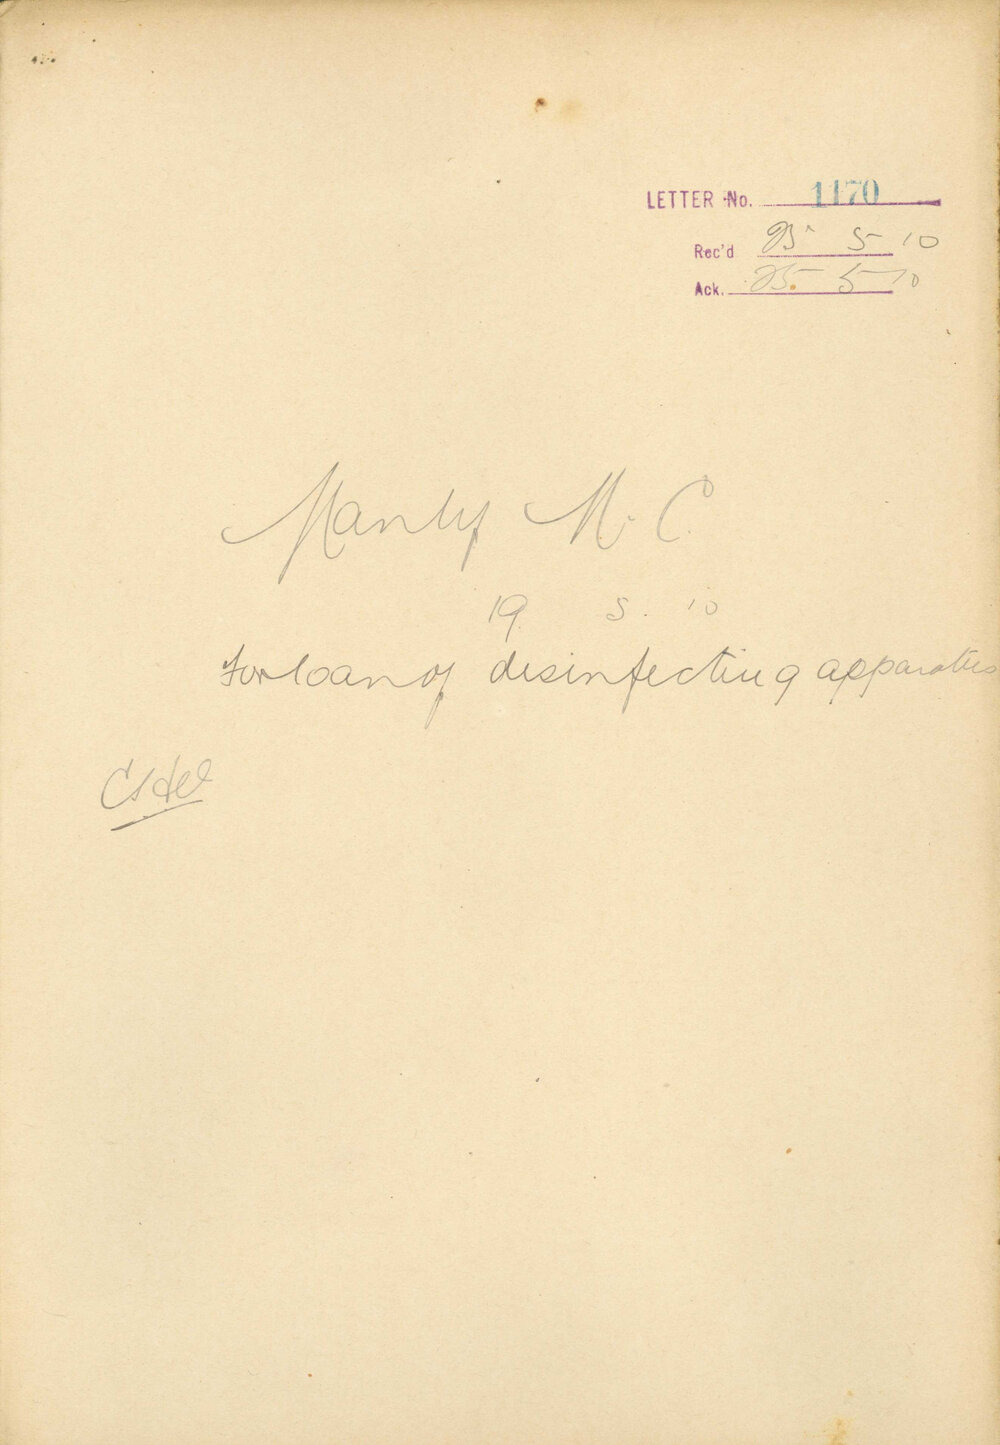 LETTER No. 1170
Rec'd 25 5 10
Ack. 25. 5 10
Manly M. C.
19. 5. 10
For loan of disinfecting apparatus